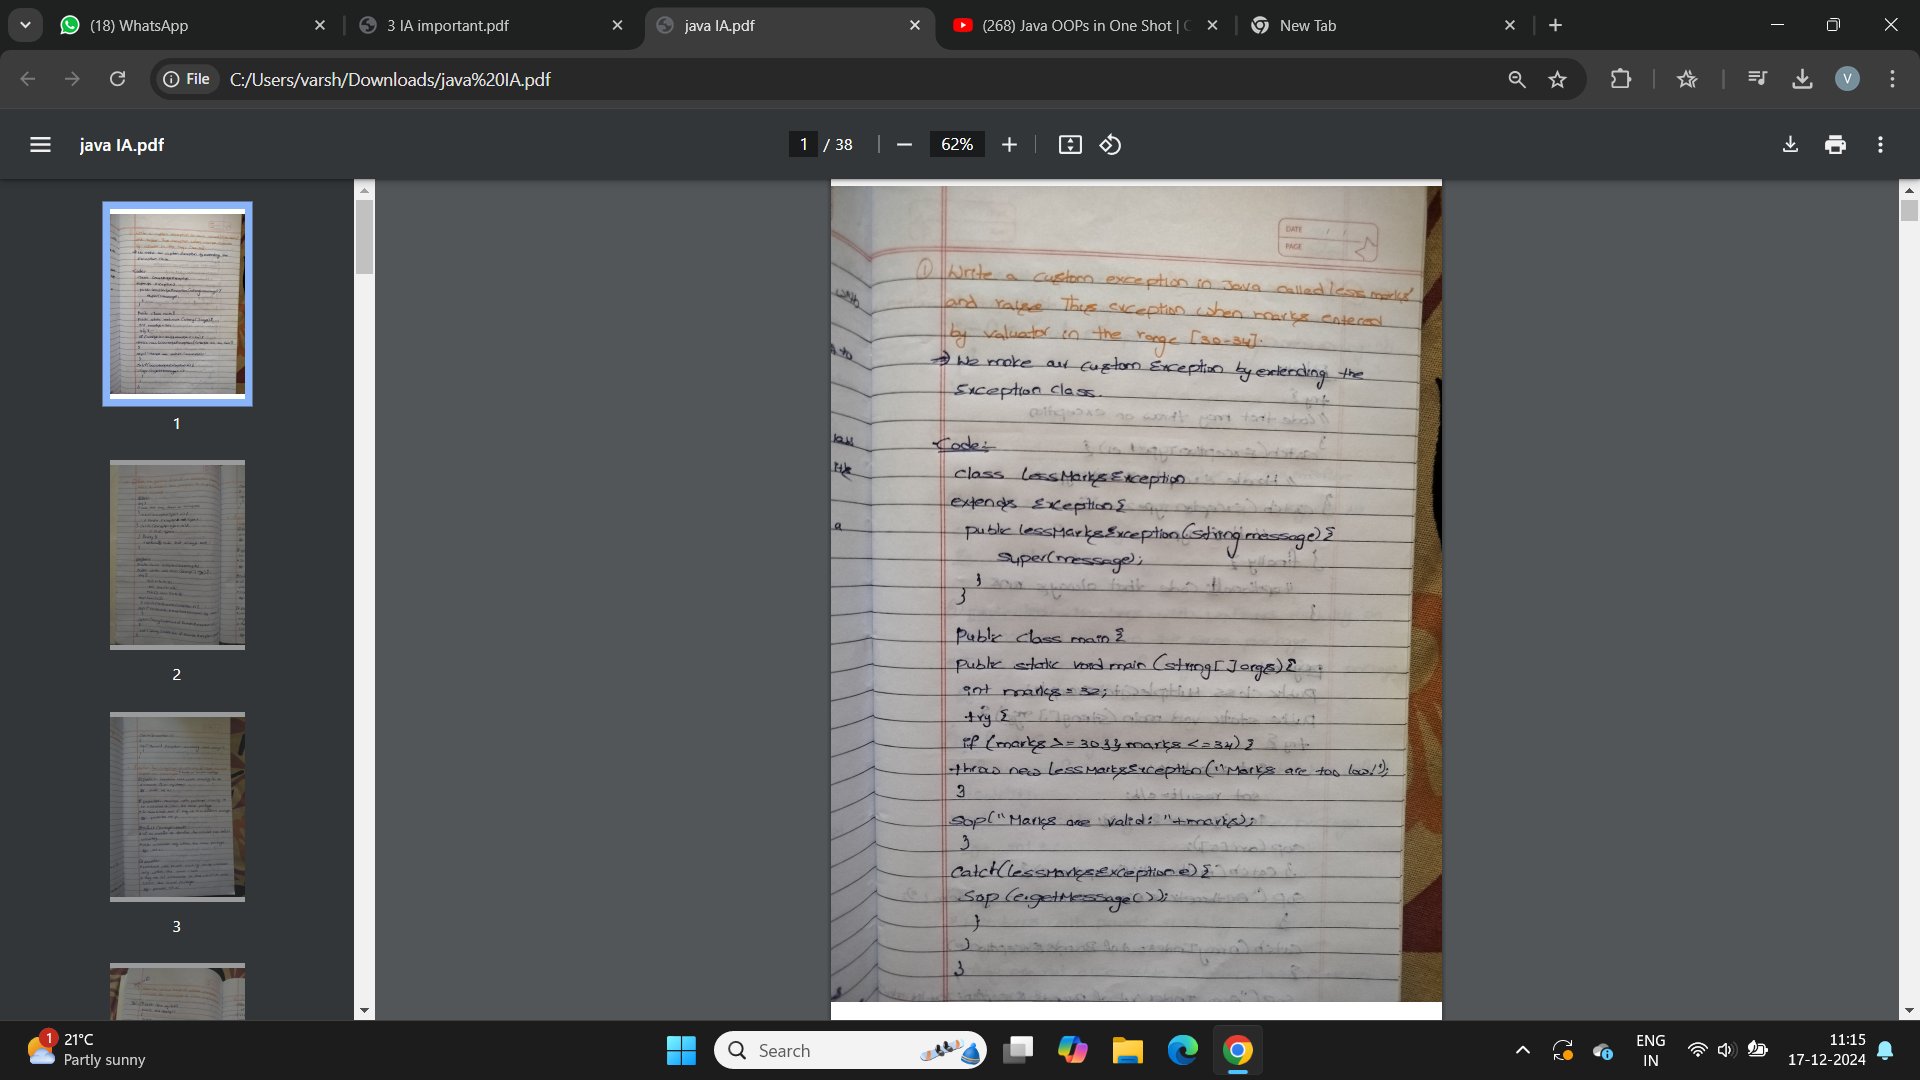 (18) WhatsApp
3 IA important.pdf
java IA.pdf
(268) Java OOPs in One Shot |
New Tab
File
C:/Users/varsh/Downloads/java%20IA.pdf
V
java IA.pdf
1 / 38
62%
DATE
PAGE
① Write a custom exception in Java called less marks
and raise This exception when marks entered
by valuator in the range [30-34].
→ We make our custom Exception by extending the
Exception class.
Code:-
class lessMarksException
extends Exception{
public lessMarksException(string message){
super(message);
}
}
Public class main {
Public static void main (string[ ] args) {
int marks = 32;
try {
if (marks >= 30 && marks <= 34) {
throw new lessMarksException("Marks are too low!");
}
Sop("Marks are valid: "+marks);
}
Catch(lessMarksException e) {
Sop (e.getMessage());
}
}
}
1
2
3
1
21°C
Partly sunny
Search
ENG
IN
11:15
17-12-2024